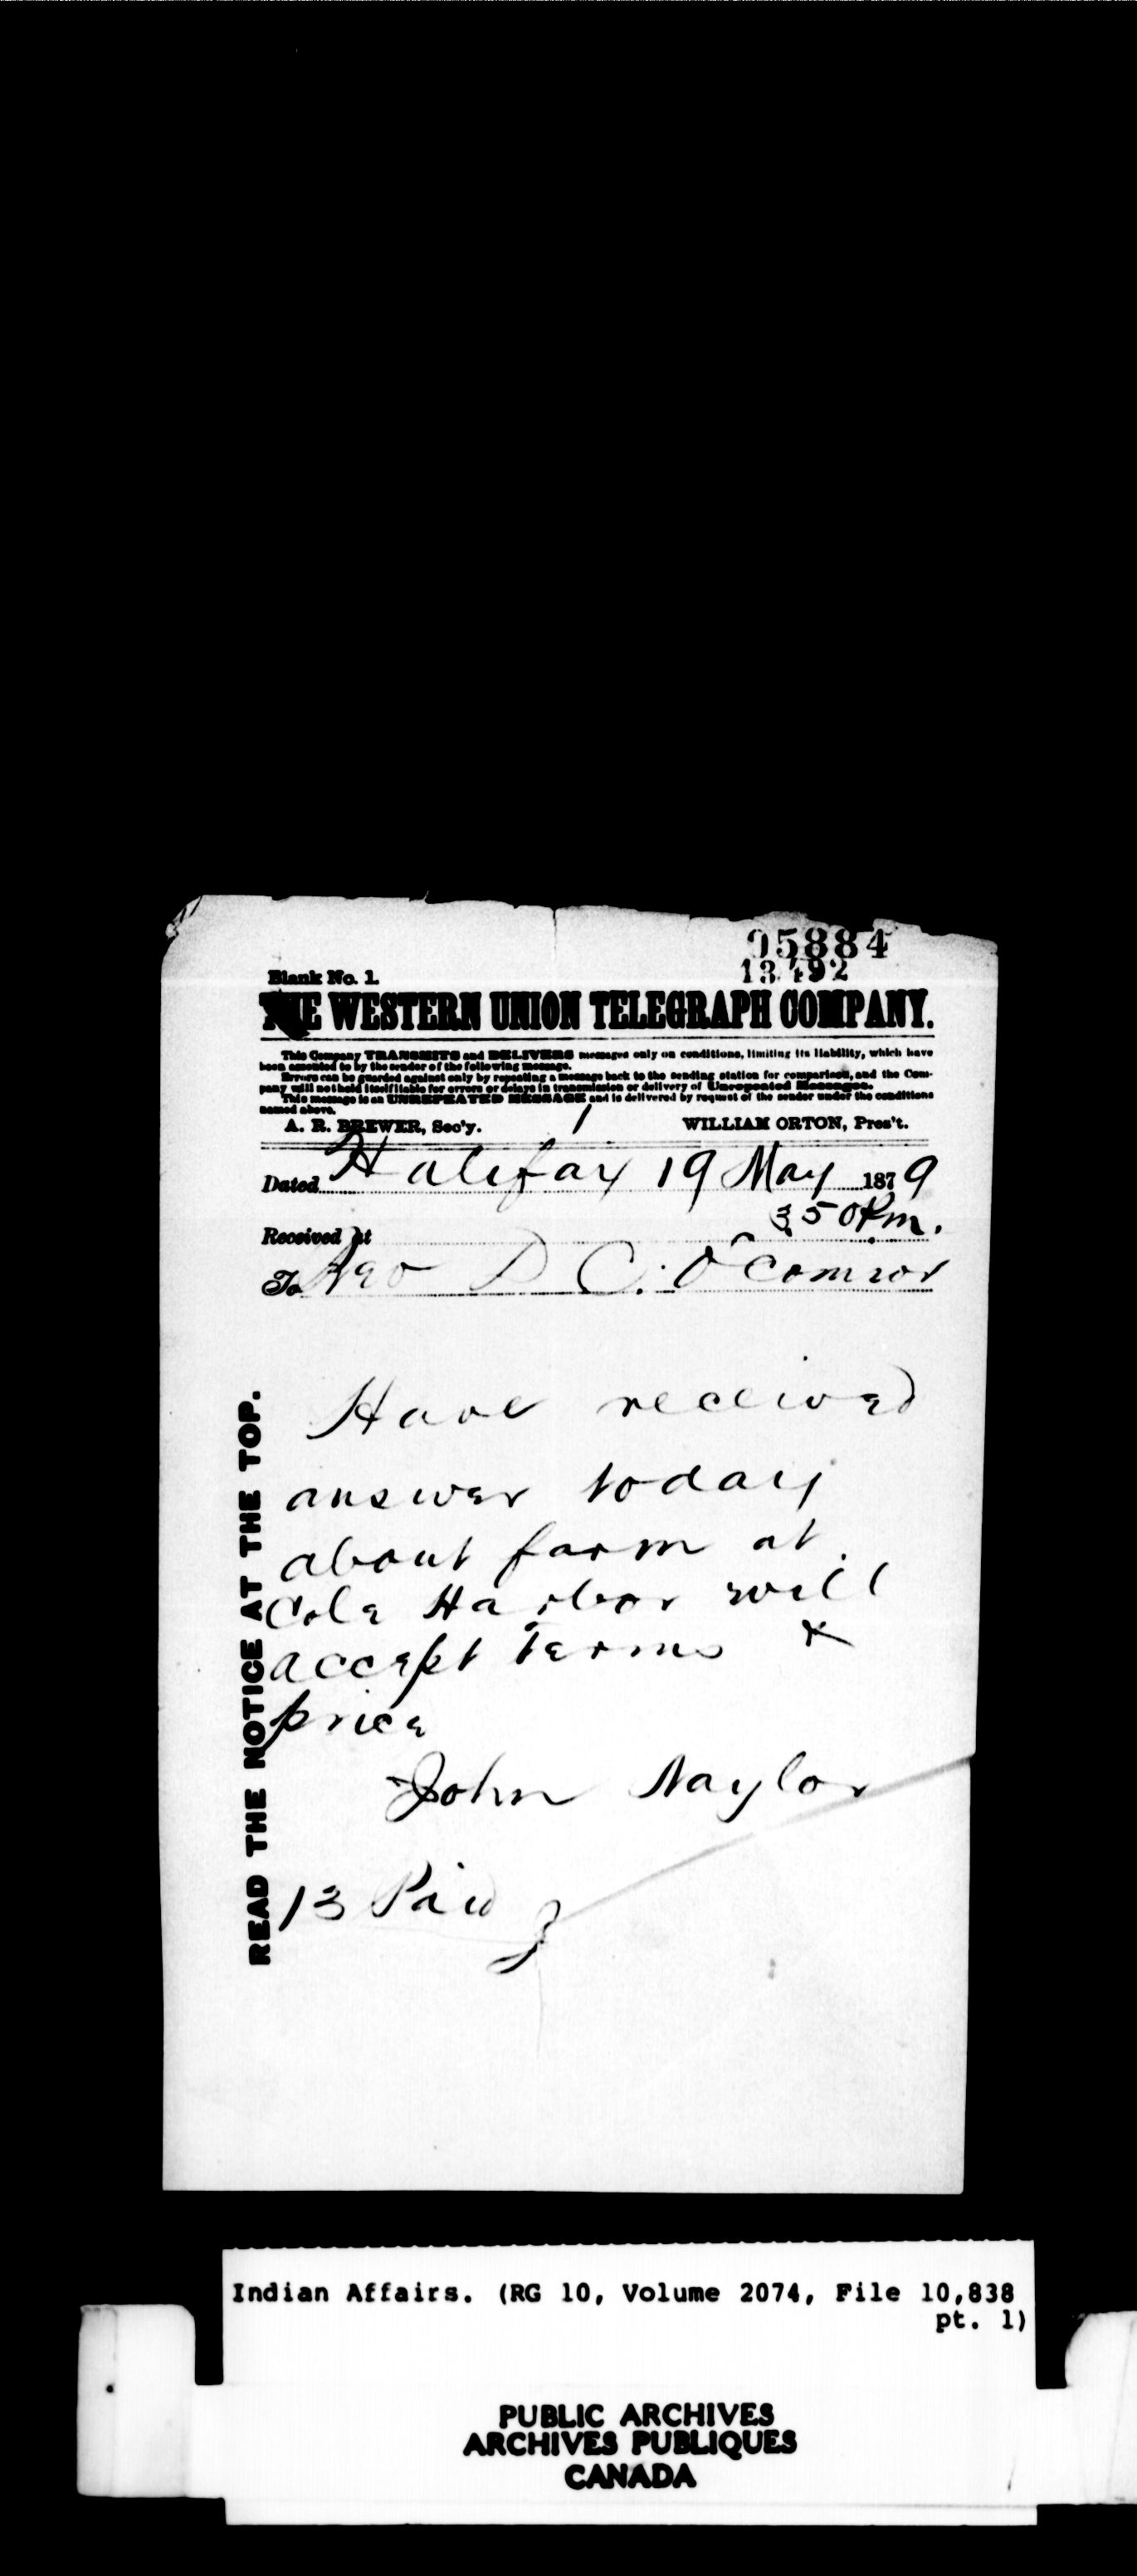 05884
13492
Blank No. 1.
THE WESTERN UNION TELEGRAPH COMPANY.
This Company TRANSMITS and DELIVERS messages only on conditions, limiting its liability, which have
been assented to by the sender of the following message.
Errors can be guarded against only by repeating a message back to the sending station for comparison, and the Com-
pany will not hold itself liable for errors or delays in transmission or delivery of Unrepeated Messages.
This message is an UNREPEATED MESSAGE and is delivered by request of the sender under the conditions
named above.
A. R. BREWER, Sec'y. 1 WILLIAM ORTON, Pres't.
Dated Halifax 19 May 1879
350 Pm.
Received at
To D C. O'Connor
READ THE NOTICE AT THE TOP.
Have received
answer today
about farm at
Cole Harbor will
accept terms &
price
John Naylor
13 Paid
Indian Affairs. (RG 10, Volume 2074, File 10,838
pt. 1)
PUBLIC ARCHIVES
ARCHIVES PUBLIQUES
CANADA